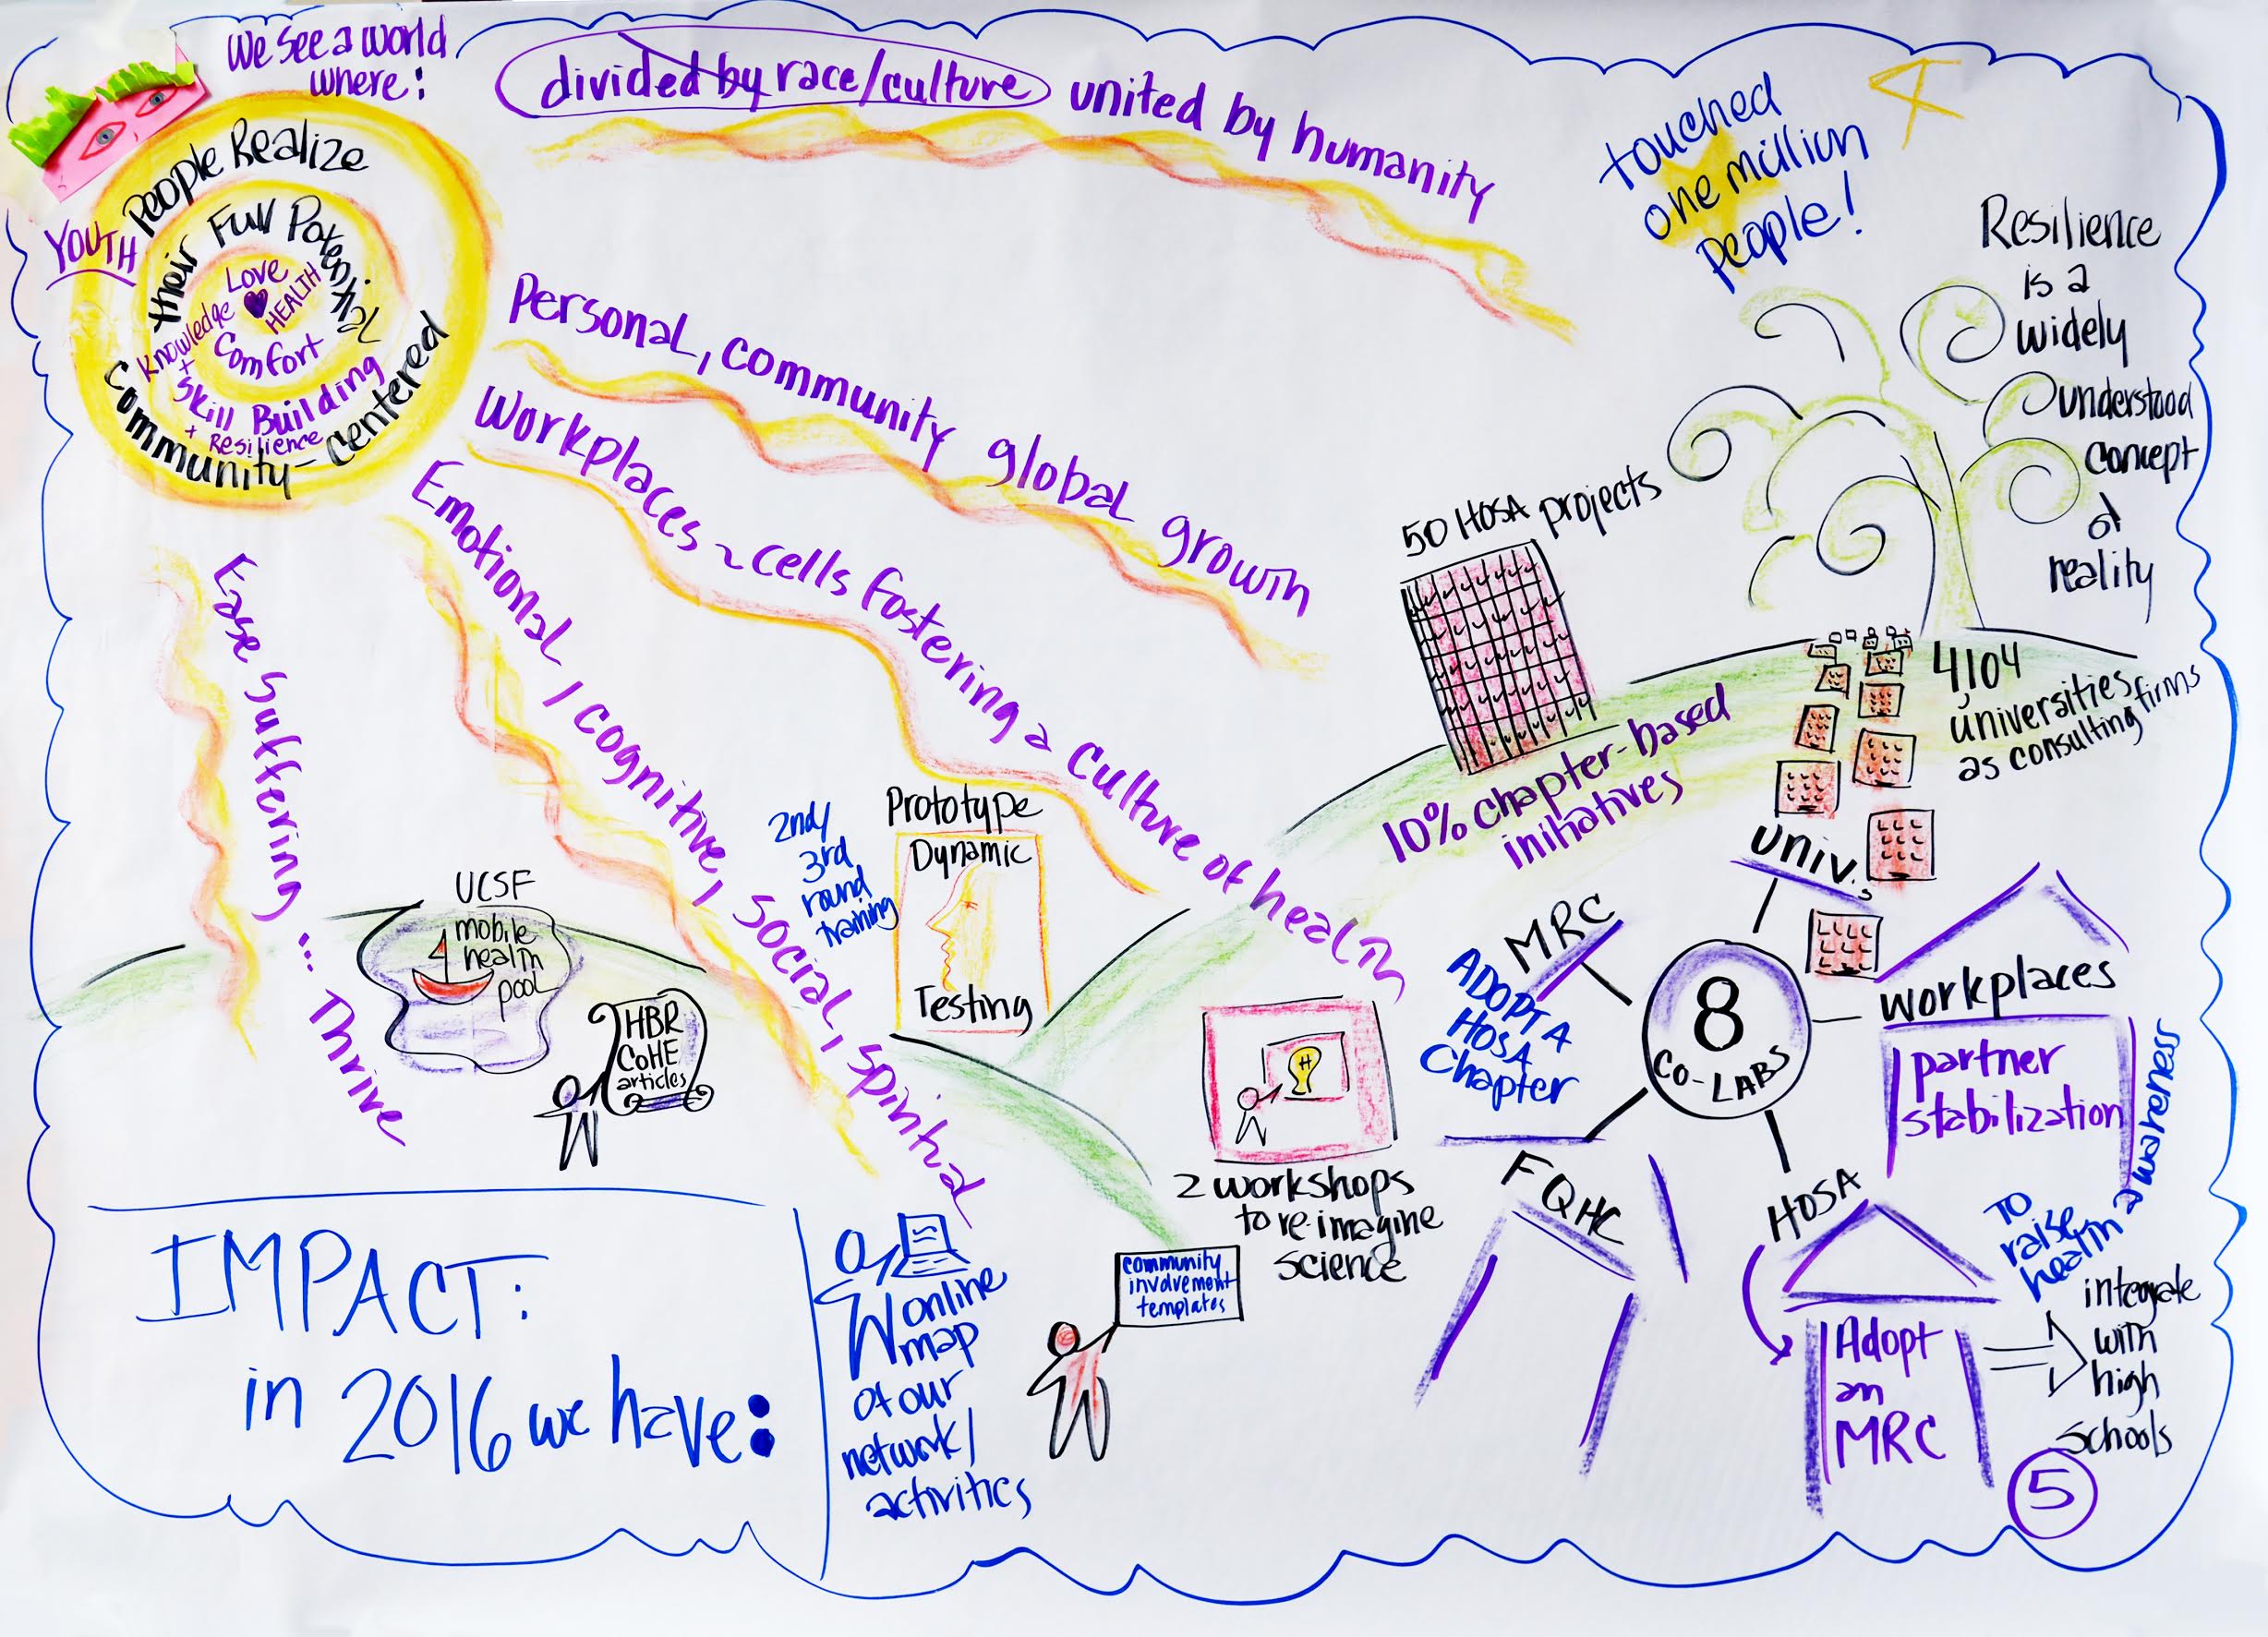 We see a world
where:
divided by race/culture united by humanity
YOUTH
People Realize
their Full Potential
Love
HEALTH
Comfort
Knowledge
+
Skill Building
+ Resilience
Community-Centered
Personal, community global growth
Workplaces ~ cells fostering a culture of health
Emotional, cognitive, social, spiritual
Ease Suffering ... Thrive
touched
one million
people!
Resilience
is a
widely
understood
concept
of
reality
50 HOSA projects
10% chapter-based
initiatives
4,104
universities
as consulting firms
UCSF
mobile
health
pool
HBR
CoHE
articles
2nd/
3rd
round
training
Prototype
Dynamic
Testing
H
2 workshops
to re-imagine
science
community
involvement
templates
online
map
of our
network/
activities
8
CO-LABS
Univ.s
MRC
ADOPT A
HOSA
Chapter
workplaces
partner
stabilization
FQHC
HOSA
Adopt
an
MRC
TO
raise
health awareness
integrate
with
high
schools
5
IMPACT:
in 2016 we have: